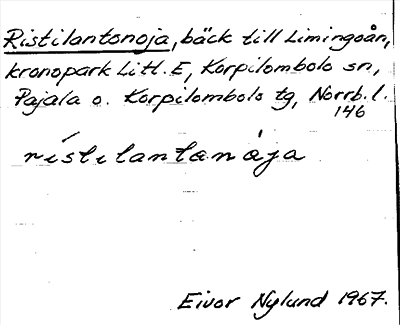 Ristilantonoja, bäck till Limingoån,
kronopark Litt. E, Korpilombolo sn,
Pajala o. Korpilombolo tg, Norrb. l.
146
rístilantanòja
Eivor Nylund 1967.